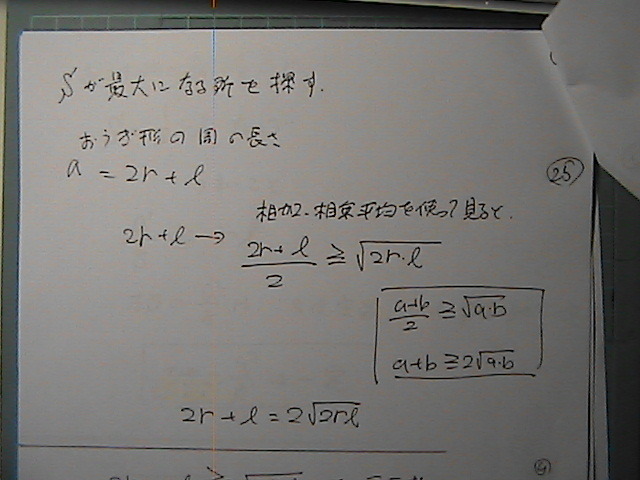 Sが最大になる所を探す.
おうぎ形の周の長さ
a = 2r + l
25
相加・相乗平均を使って見ると.
2r + l → (2r + l)/2 ≧ √(2r・l)
(a+b)/2 ≧ √(a・b)
a+b ≧ 2√(a・b)
2r + l = 2√(2rl)